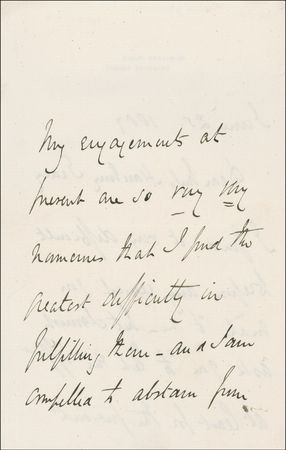 My engagements at
present are so very very
numerous that I find the
greatest difficulty in
fulfilling them – and I am
compelled to abstain from